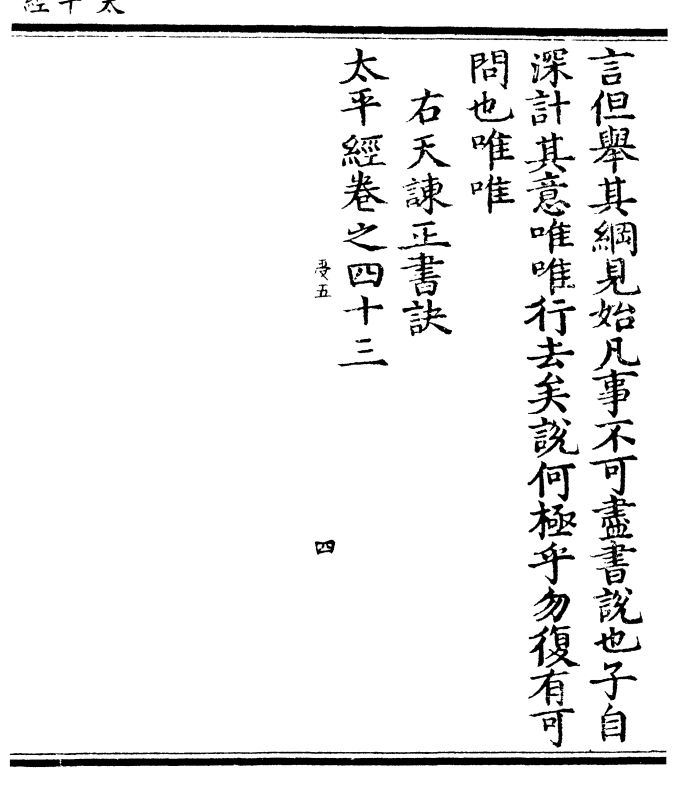 言但舉其綱見始凡事不可盡書說也子自
深計其意唯唯行去矣說何極乎勿復有可
問也唯唯
右天諫正書訣
太平經卷之四十三
受五
四